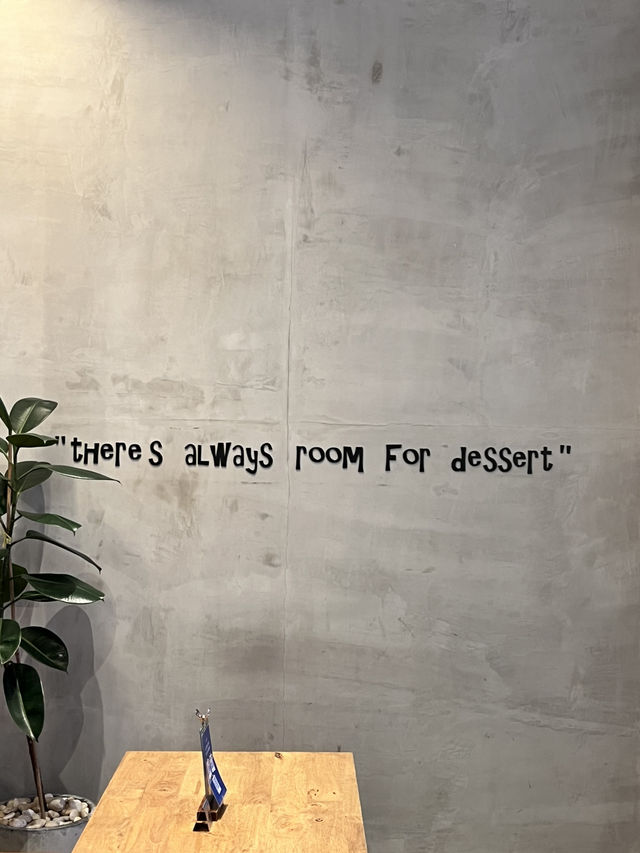 "there s always room for dessert"